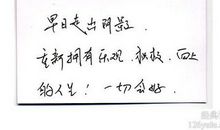 早日走出阴影
重新拥有乐观、积极、向上
的人生！一切安好.